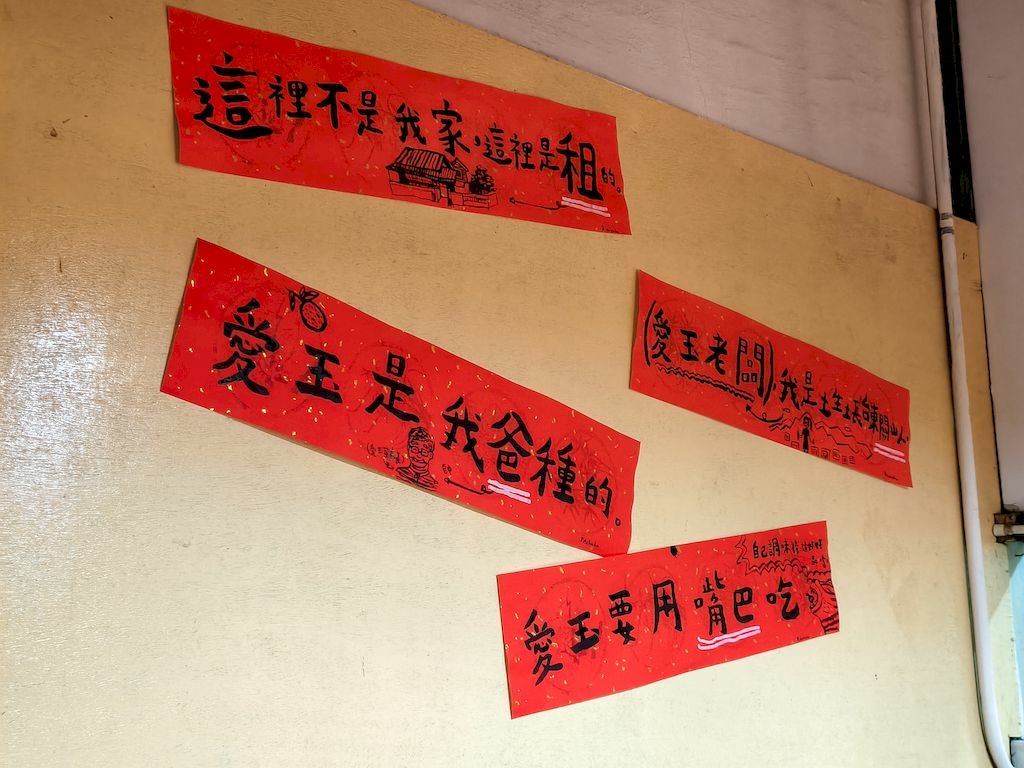 這裡不是我家,這裡是租的。
愛玉是我爸種的。
(愛玉老闆),我是土生土長台東關山人。
愛玉要用嘴巴吃
自己調味